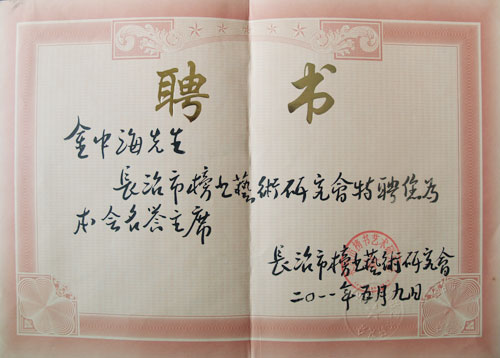 聘书
金中海先生
長治市榜书藝術研究會特聘您为
本会名誉主席
長治市榜书藝術研究會
二〇一一年五月九日